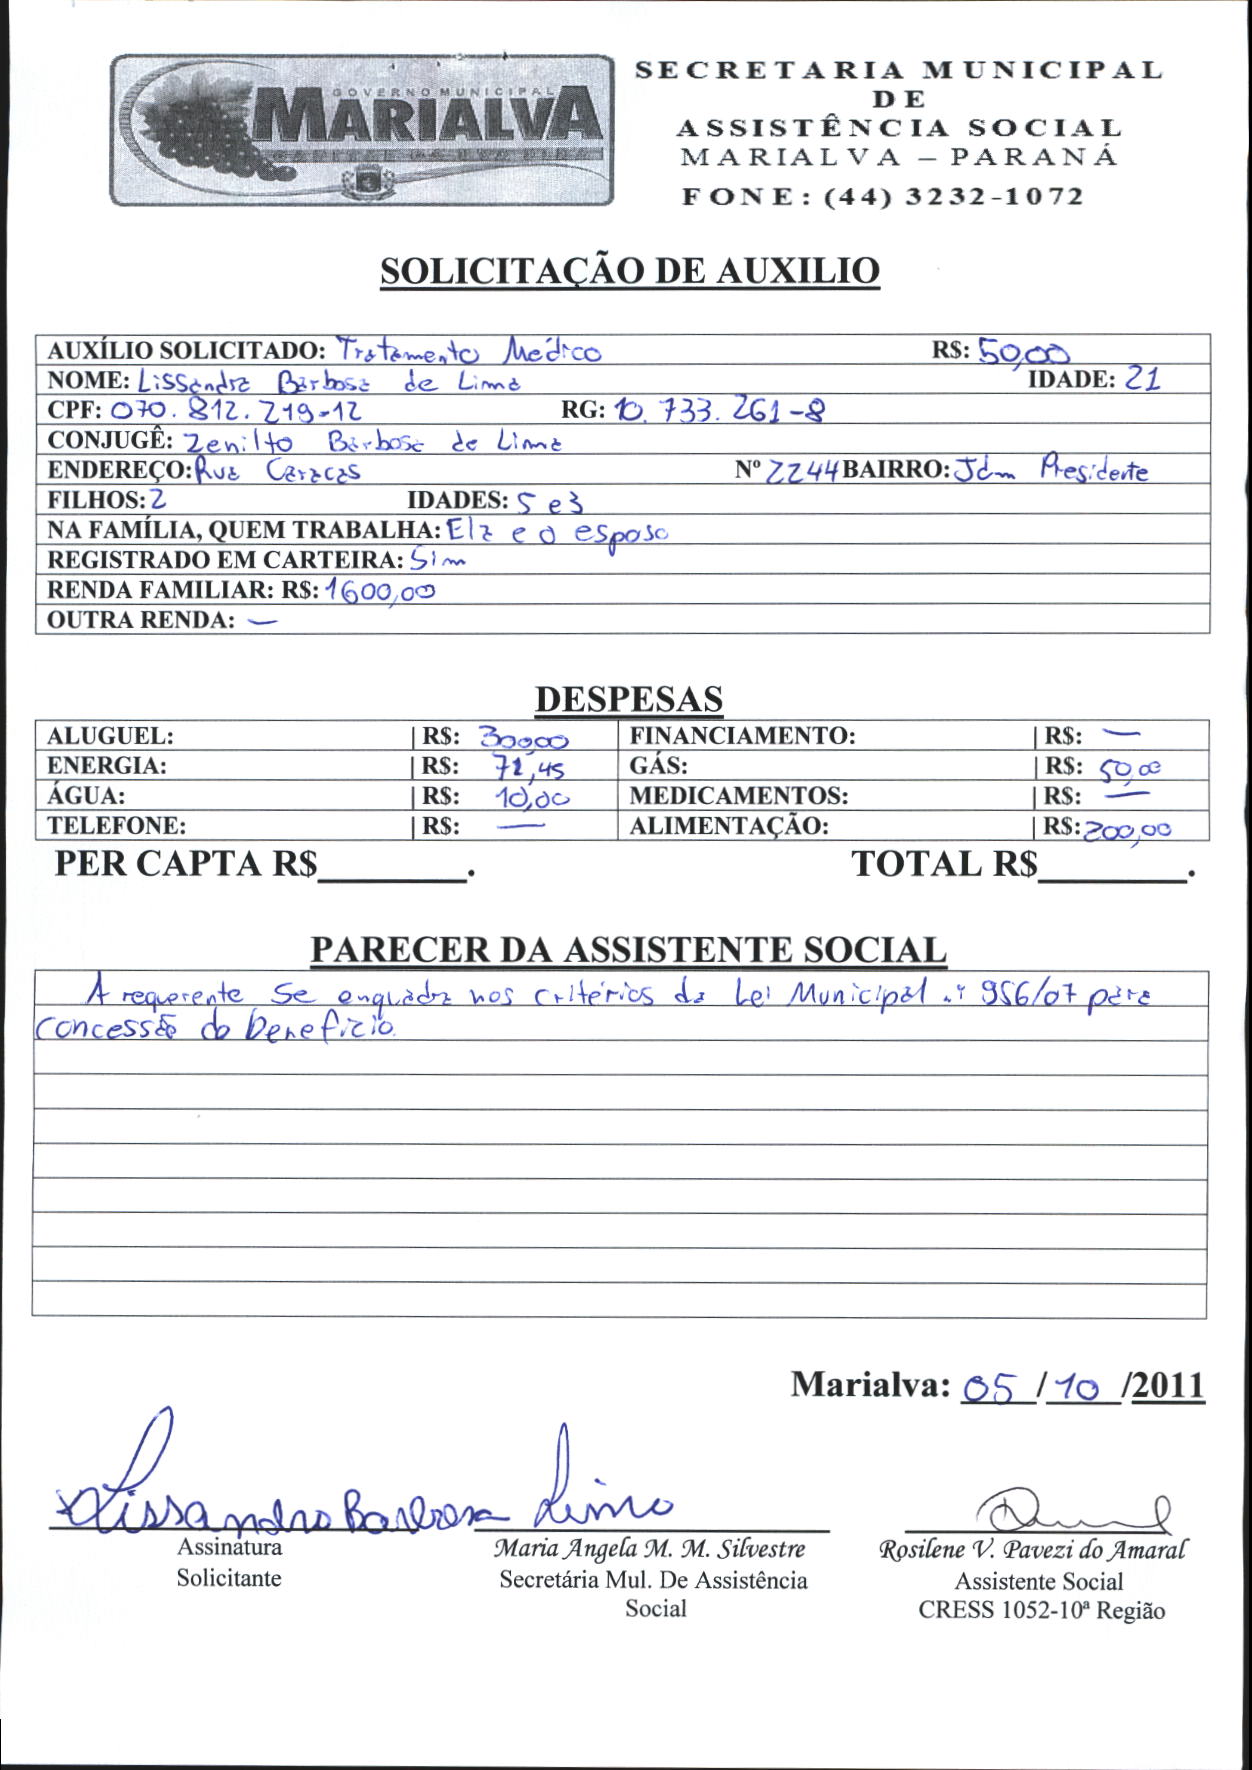 GOVERNO MUNICIPAL
MARIALVA
SECRETARIA MUNICIPAL
DE
ASSISTÊNCIA SOCIAL
MARIALVA – PARANÁ
FONE: (44) 3232-1072
SOLICITAÇÃO DE AUXILIO
AUXÍLIO SOLICITADO: Tratamento Medico R$: 50,00
NOME: Lissandra Barbosa de Lima IDADE: 21
CPF: 070.812.219-12 RG: 10.733.261-8
CONJUGÊ: Zenilto Barbosa de Lima
ENDEREÇO: Rua Caracas Nº 2244 BAIRRO: Jdm Presidente
FILHOS: 2 IDADES: 5 e 3
NA FAMÍLIA, QUEM TRABALHA: Ela e o esposo
REGISTRADO EM CARTEIRA: Sim
RENDA FAMILIAR: R$: 1600,00
OUTRA RENDA: —
DESPESAS
ALUGUEL: | R$: 300,00 FINANCIAMENTO: | R$: —
ENERGIA: | R$: 71,45 GÁS: | R$: 50,00
ÁGUA: | R$: 10,00 MEDICAMENTOS: | R$: —
TELEFONE: | R$: — ALIMENTAÇÃO: | R$: 200,00
PER CAPTA R$________. TOTAL R$________.
PARECER DA ASSISTENTE SOCIAL
A requerente se enquadra nos critérios da Lei Municipal nº 956/07 para
concessão do benefício.
Marialva: 05 / 10 /2011
Lissandra Barbosa Lima
Assinatura Maria Angela M. M. Silvestre Rosilene V. Pavezi do Amaral
Solicitante Secretária Mul. De Assistência Assistente Social
Social CRESS 1052-10ª Região